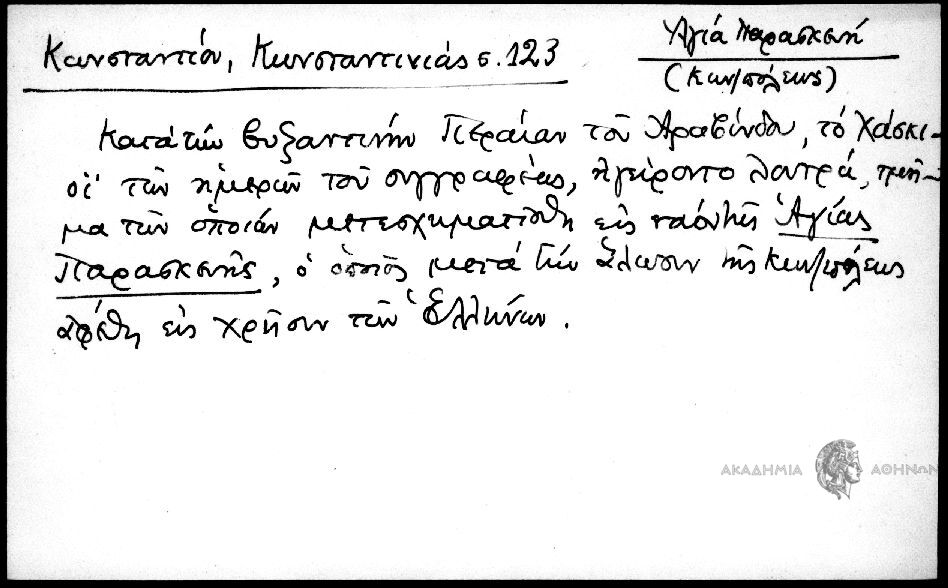 Κωνσταντίου, Κωνσταντινιάς σ. 123
Ἁγιά Παρασκευή
(Κων/πόλεως)
Κατά τήν βυζαντινήν Περαίαν τοῦ Ἀραβίνδου, τό Χάσκι-
οϊ τῶν ἡμερῶν τοῦ συγγραφέως, ἠγείροντο λουτρά, τμῆ-
μα τῶν ὁποίων μετεσχηματίσθη εἰς ναόν τῆς Ἁγίας
Παρασκευῆς, ὁ ὁποῖος μετά τήν ἅλωσιν τῆς Κων/πόλεως
ἀφέθη εἰς χρῆσιν τῶν Ἑλλήνων.
ΑΚΑΔΗΜΙΑ ΑΘΗΝΩΝ